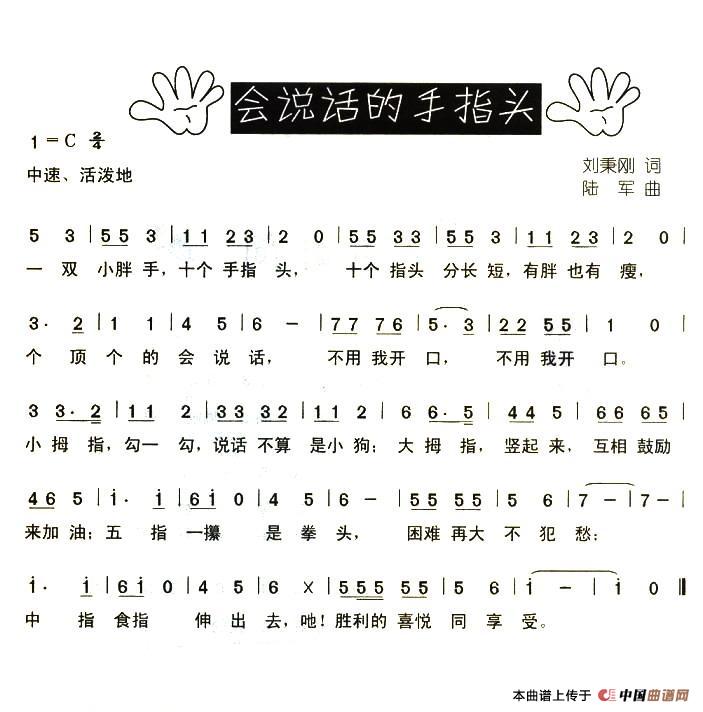 会说话的手指头
1=C 2/4
中速、活泼地
刘秉刚 词
陆 军 曲
5 3 | 55 3 | 11 23 | 2 0 | 55 33 | 55 3 | 11 23 | 2 0 |
一 双 小胖 手，十个 手指 头， 十个 指头 分长 短，有胖 也有 瘦，
3· 2 | 1 1 | 4 5 | 6 － | 77 76 | 5· 3 | 22 55 | 1 0 |
个 顶 个 的 会 说 话， 不用 我开 口， 不用 我开 口。
3 3·2 | 11 2 | 33 32 | 11 2 | 6 6·5 | 44 5 | 66 65 |
小 拇 指，勾一 勾，说话 不算 是小 狗；大 拇 指，竖起 来，互相 鼓励
46 5 | i· i | 6i 0 | 4 5 | 6 － | 55 55 | 5 6 | 7 － | 7 － |
来加 油；五 指 一攥 是 拳 头， 困难 再大 不 犯 愁；
i· i | 6i 0 | 4 5 | 6 X | 555 55 | 5 6 | i － | i 0 ‖
中 指 食指 伸 出 去，吔！胜利的 喜悦 同 享 受。
本曲谱上传于 中国曲谱网